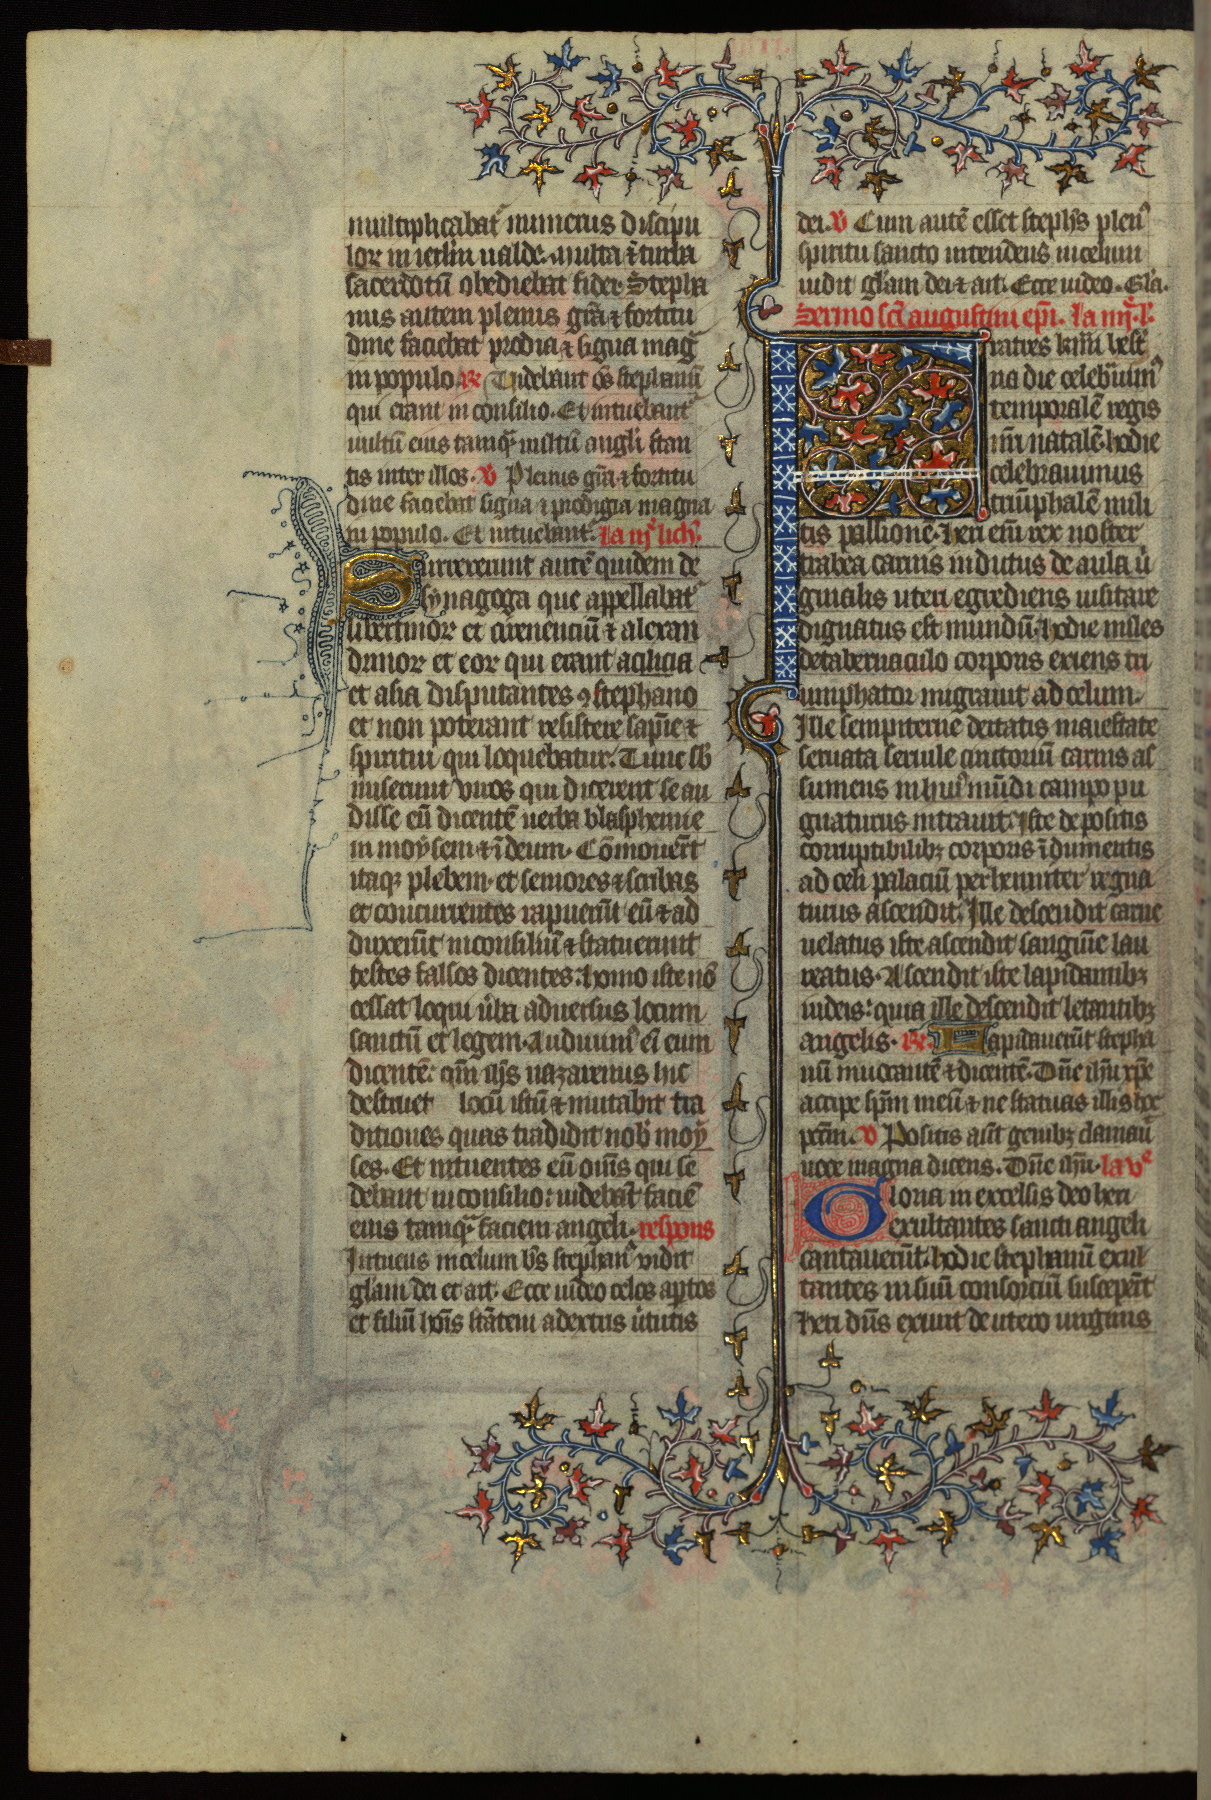 multiplicabat᷑ numerus discipu
lor̄ in ierl̄m ualde. Multa ēt turba
sacerdotū obediebat fidei. Stepha
nus autem plenus gr̄a ⁊ fortitu
dine faciebat prodia ⁊ signa mag̃
in populo. ℟ Uidebant oēs stephanū
qui erant in consilio. Et intuebant᷑
uultū eius tamq̃ uultū angl̄i stan
tis inter illos. ℣ Plenus gr̄a ⁊ fortitu
dine faciebat signa ⁊ prodigia magna
in populo. Et intuebant᷑. La iijͤ. lich̄.
Surrexerunt autē quidem de
synagoga que appellabat᷑
libertinor̄ et cirenenciū ⁊ alexan
drinor̄ et eor̄ qui erant a cilicia
et asia disputantes ꝯ stephano
et non poterant resistere sapīe ⁊
spiritui qui loquebatur. Tunc sb̄
miserunt uiros qui dicerent se au
disse eū dicentē uerba blasphemie
in moysem ⁊ ī deum. Cōmouer̄t
itaqꝫ plebem. et seniores ⁊ scribas
et concurrentes rapuerūt eū ⁊ ad
duxerūt in consiliū ⁊ statuerunt
testes falsos dicentes: homo iste nō
cessat loqui ūba aduersus locum
sanctū et legem. Audiuimꝰ eī eum
dicentē: qm̄ ih̄s nazarenus hic
destruet locū istū ⁊ mutabit tra
ditiones quas tradidit nob̄ moy
ses. Et intuentes eū om̄s qui se
debant in consilio: uidebāt faciē
eius tamq̃ faciem angeli. respons
Intuens in celum b̄s stephanꝰ vidit
gl̄am dei et ait. Ecce uideo celos aptos
et filiū hoīs stātem a dextris ūtutis
dei. ℣ Cum autē esset steph̄s plenꝰ
spiritu sancto intendens in celum
uidit gl̄am dei ⁊ ait. Ecce uideo. Gl̄a.
Sermo sc̄i augustini ep̄i. La iiijͣ. l̄.
Fratres km̄i hest̄
na die celebrauimꝰ
temporalē regis
nr̄i natalē. hodie
celebrauimus
triūphalē mili
tis passionē. Heri em̄ rex noster
trabea carnis indutus de aula ū
ginalis uteri egrediens uisitare
dignatus est mundū. hodie miles
de tabernaculo corporis exiens tri
umphator migrauit ad celum.
Ille sempiterne deitatis maiestate
seruata seruile cinctoriū carnis as
sumens in huiꝰ mūdi campo pu
gnaturus intrauit. Iste depositis
corruptibilibꝫ corporis īdumentis
ad celi palaciū perhenniter regna
turus ascendit. Ille descendit carne
uelatus iste ascendit sanguīe lau
reatus. Ascendit iste lapidantibꝫ
iudeis: quia ille descendit letantibꝫ
angelis. ℟. Lapidauerūt stepha
nū inuocantē ⁊ dicentē. Dn̄e ih̄u xp̄e
accipe sp̄m meū ⁊ ne statuas illis hoc
pctm̄. ℣ Positis aūt genibꝫ clamaū
uoce magna dicens. Dn̄e ih̄u. La vͤ
Gloria in excelsis deo heri
exultantes sancti angeli
cantauerūt. hodie stephanū exul
tantes in suū consorciū susceper̄t
Heri dn̄s exiuit de utero uirginis